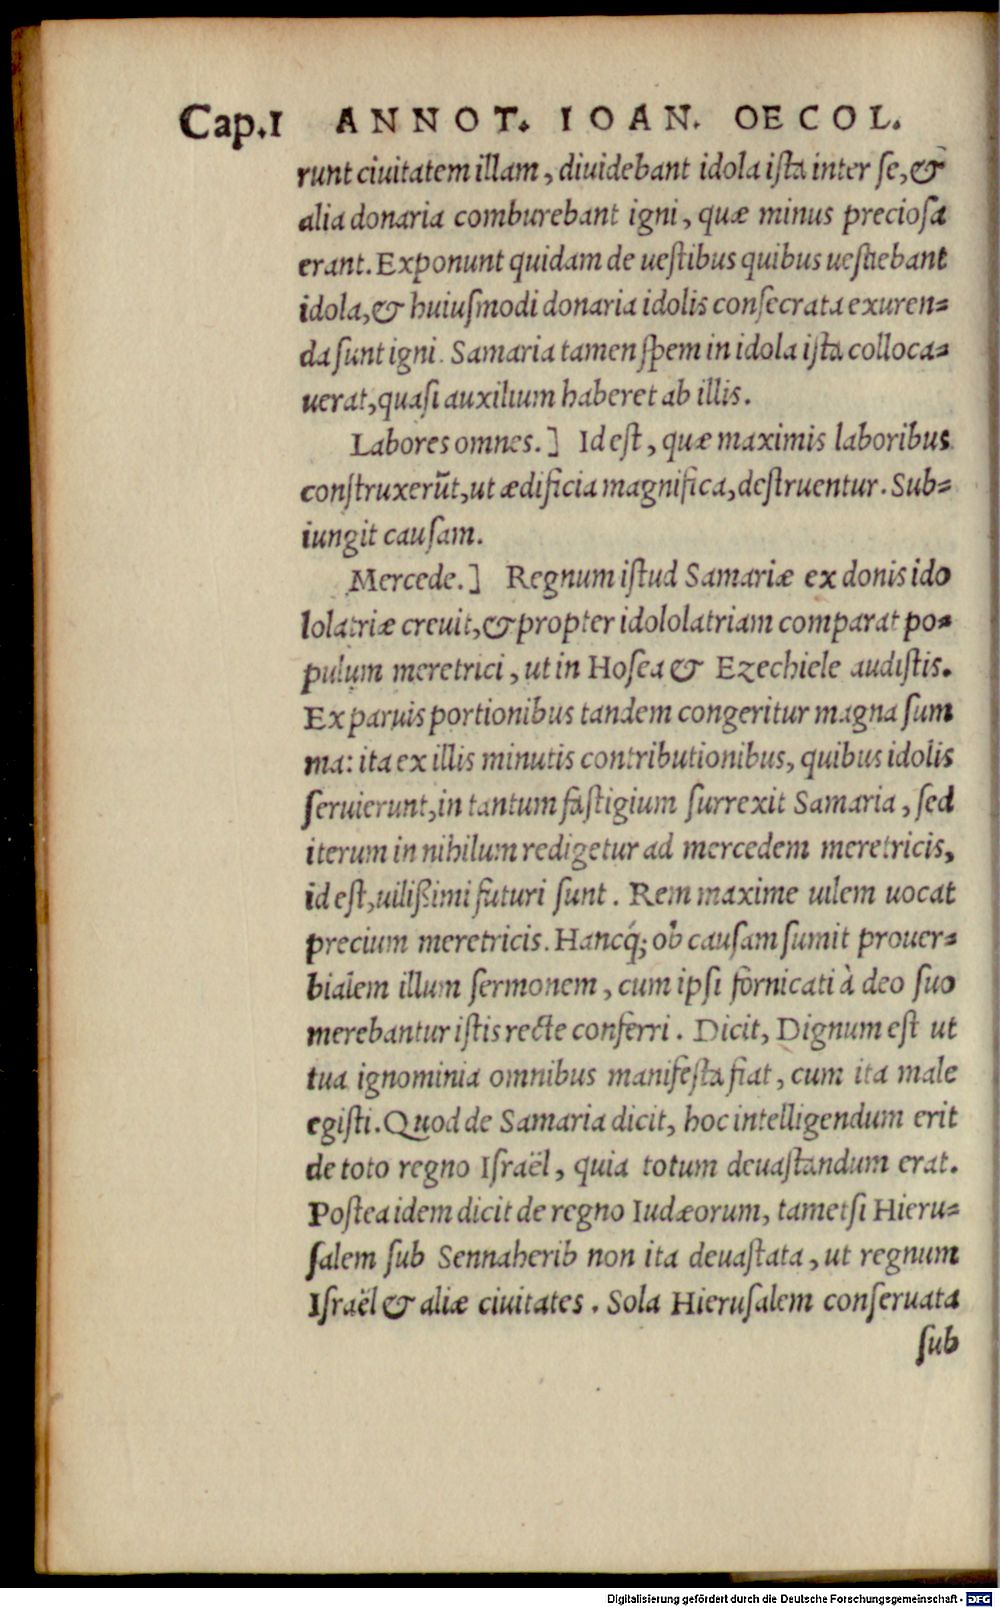 Cap.I ANNOT. IOAN. OECOL.
runt ciuitatem illam, diuidebant idola ista inter se, &
alia donaria comburebant igni, quæ minus preciosa
erant. Exponunt quidam de uestibus quibus uestiebant
idola, & huiusmodi donaria idolis consecrata exuren=
da sunt igni. Samaria tamen spem in idola ista colloca=
uerat, quasi auxilium haberet ab illis.
Labores omnes.] Id est, quæ maximis laboribus
construxerũt, ut ædificia magnifica, destruentur. Sub=
iungit causam.
Mercede.] Regnum istud Samariæ ex donis ido
lolatriæ creuit, & propter idololatriam comparat po=
pulum meretrici, ut in Hosea & Ezechiele audistis.
Ex paruis portionibus tandem congeritur magna sum
ma: ita ex illis minutis contributionibus, quibus idolis
seruierunt, in tantum fastigium surrexit Samaria, sed
iterum in nihilum redigetur ad mercedem meretricis,
id est, uilißimi futuri sunt. Rem maxime uilem uocat
precium meretricis. Hancq́; ob causam sumit prouer=
bialem illum sermonem, cum ipsi fornicati à deo suo
merebantur istis recte conferri. Dicit, Dignum est ut
tua ignominia omnibus manifesta fiat, cum ita male
egisti. Quod de Samaria dicit, hoc intelligendum erit
de toto regno Israël, quia totum deuastandum erat.
Postea idem dicit de regno Iudæorum, tametsi Hieru=
salem sub Sennaherib non ita deuastata, ut regnum
Israël & aliæ ciuitates. Sola Hierusalem conseruata
sub
Digitalisierung gefördert durch die Deutsche Forschungsgemeinschaft - DFG